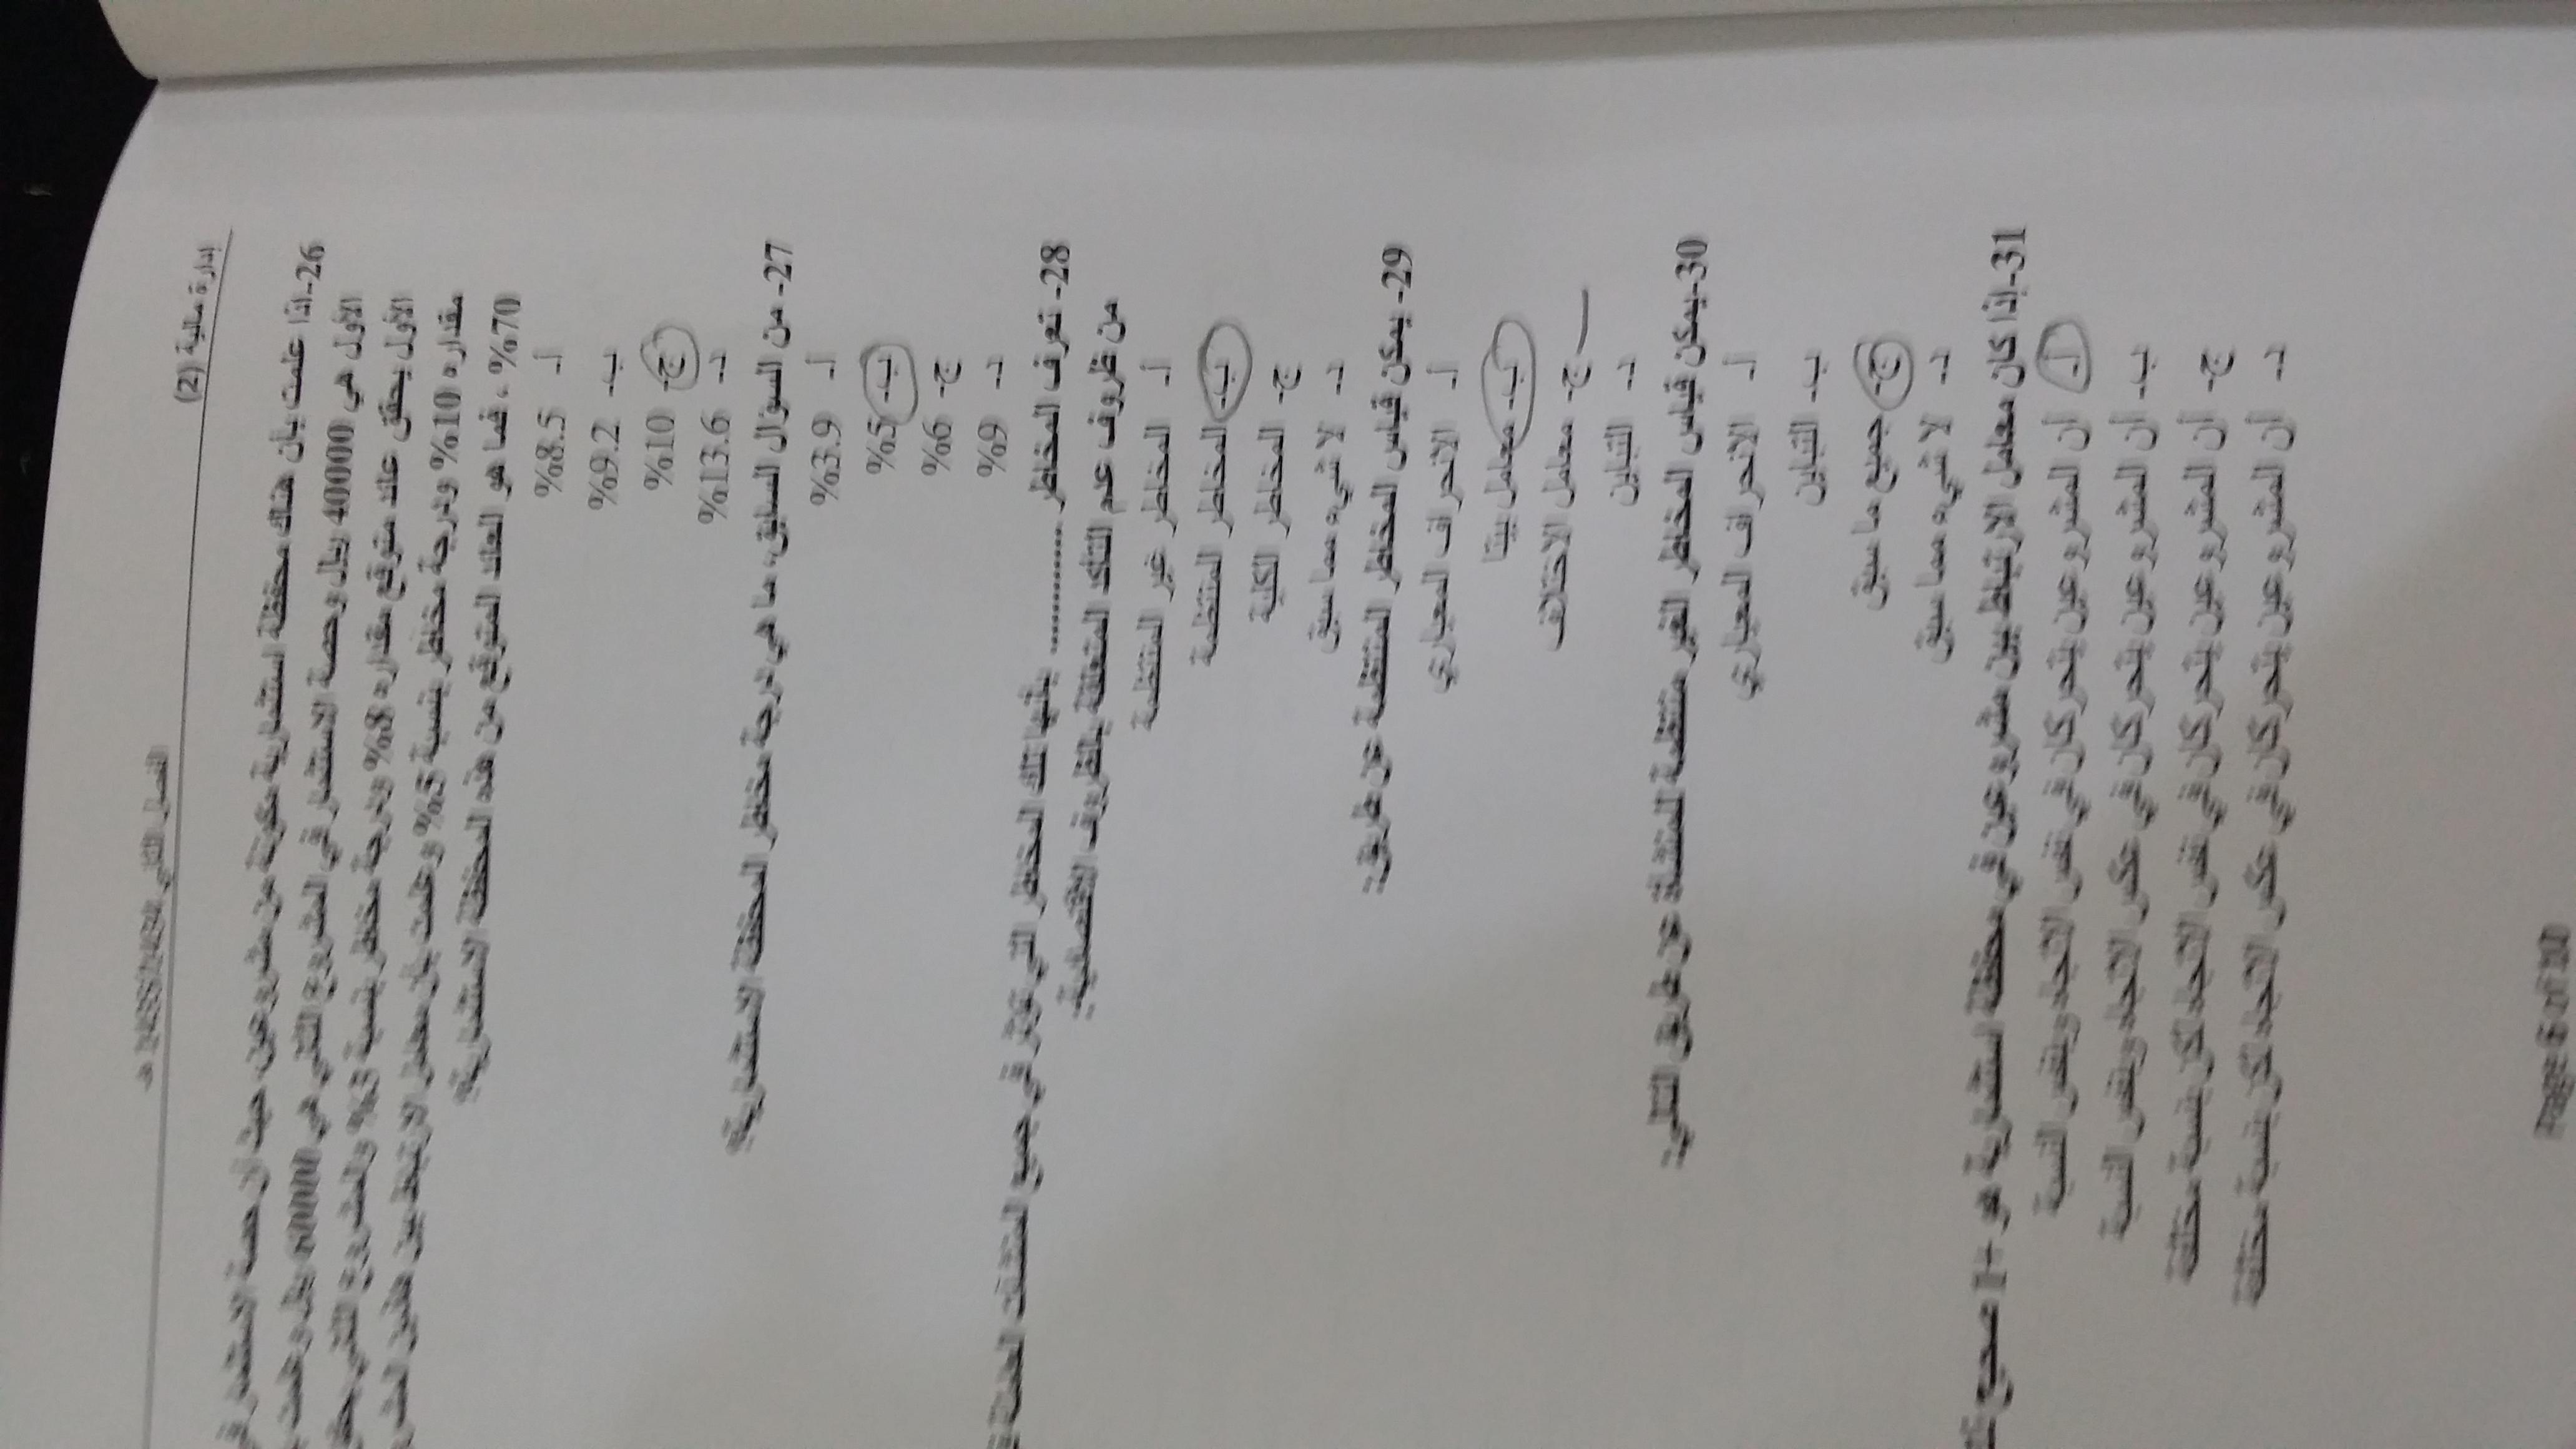 إدارة مالية (2)
الفصل الثاني
26-إذا علمت بأن هناك محفظة استثمارية مكونة من مشروعين حيث أن حصة الاستثمار في
الأول هي 40000 ريال وحصة الاستثمار في المشروع الثاني هي 60000 ريال وعلمت
الأول يحقق عائد متوقع مقداره 8% ودرجة مخاطر بنسبة 3% والمشروع الثاني
مقداره 10% ودرجة مخاطر بنسبة 5% وعلمت بأن معامل الارتباط بين
70% ، فما هو العائد المتوقع من هذه المحفظة الاستثمارية؟
أ- 8.5%
ب- 9.2%
ج- 10%
د- 13.6%
27- من السؤال السابق، ما هي درجة مخاطر المحفظة الاستثمارية؟
أ- 3.9%
ب- 5%
ج- 6%
د- 9%
28- تعرف المخاطر ............ بأنها تلك المخاطر التي تؤثر في جميع المنشآت العاملة
من ظروف عدم التأكد المتعلقة بالظروف الاقتصادية:
أ- المخاطر غير المنتظمة
ب- المخاطر المنتظمة
ج- المخاطر الكلية
د- لا شيء مما سبق
29- يمكن قياس المخاطر المنتظمة عن طريق:
أ- الانحراف المعياري
ب- معامل بيتا
ج- معامل الاختلاف
د- التباين
30-يمكن قياس المخاطر الغير منتظمة للمنشأة عن طريق التالي:
أ- الانحراف المعياري
ب- التباين
ج- جميع ما سبق
د- لا شيء مما سبق
31-إذا كان معامل الارتباط بين مشروعين في محفظة استثمارية هو +1 صحيح
أ- أن المشروعين يتحركان في نفس الاتجاه وبنفس النسبة
ب- أن المشروعين يتحركان في عكس الاتجاه وبنفس النسبة
ج- أن المشروعين يتحركان في نفس الاتجاه لكن بنسبة مختلفة
د- أن المشروعين يتحركان في عكس الاتجاه لكن بنسبة مختلفة
Page 6 of 10